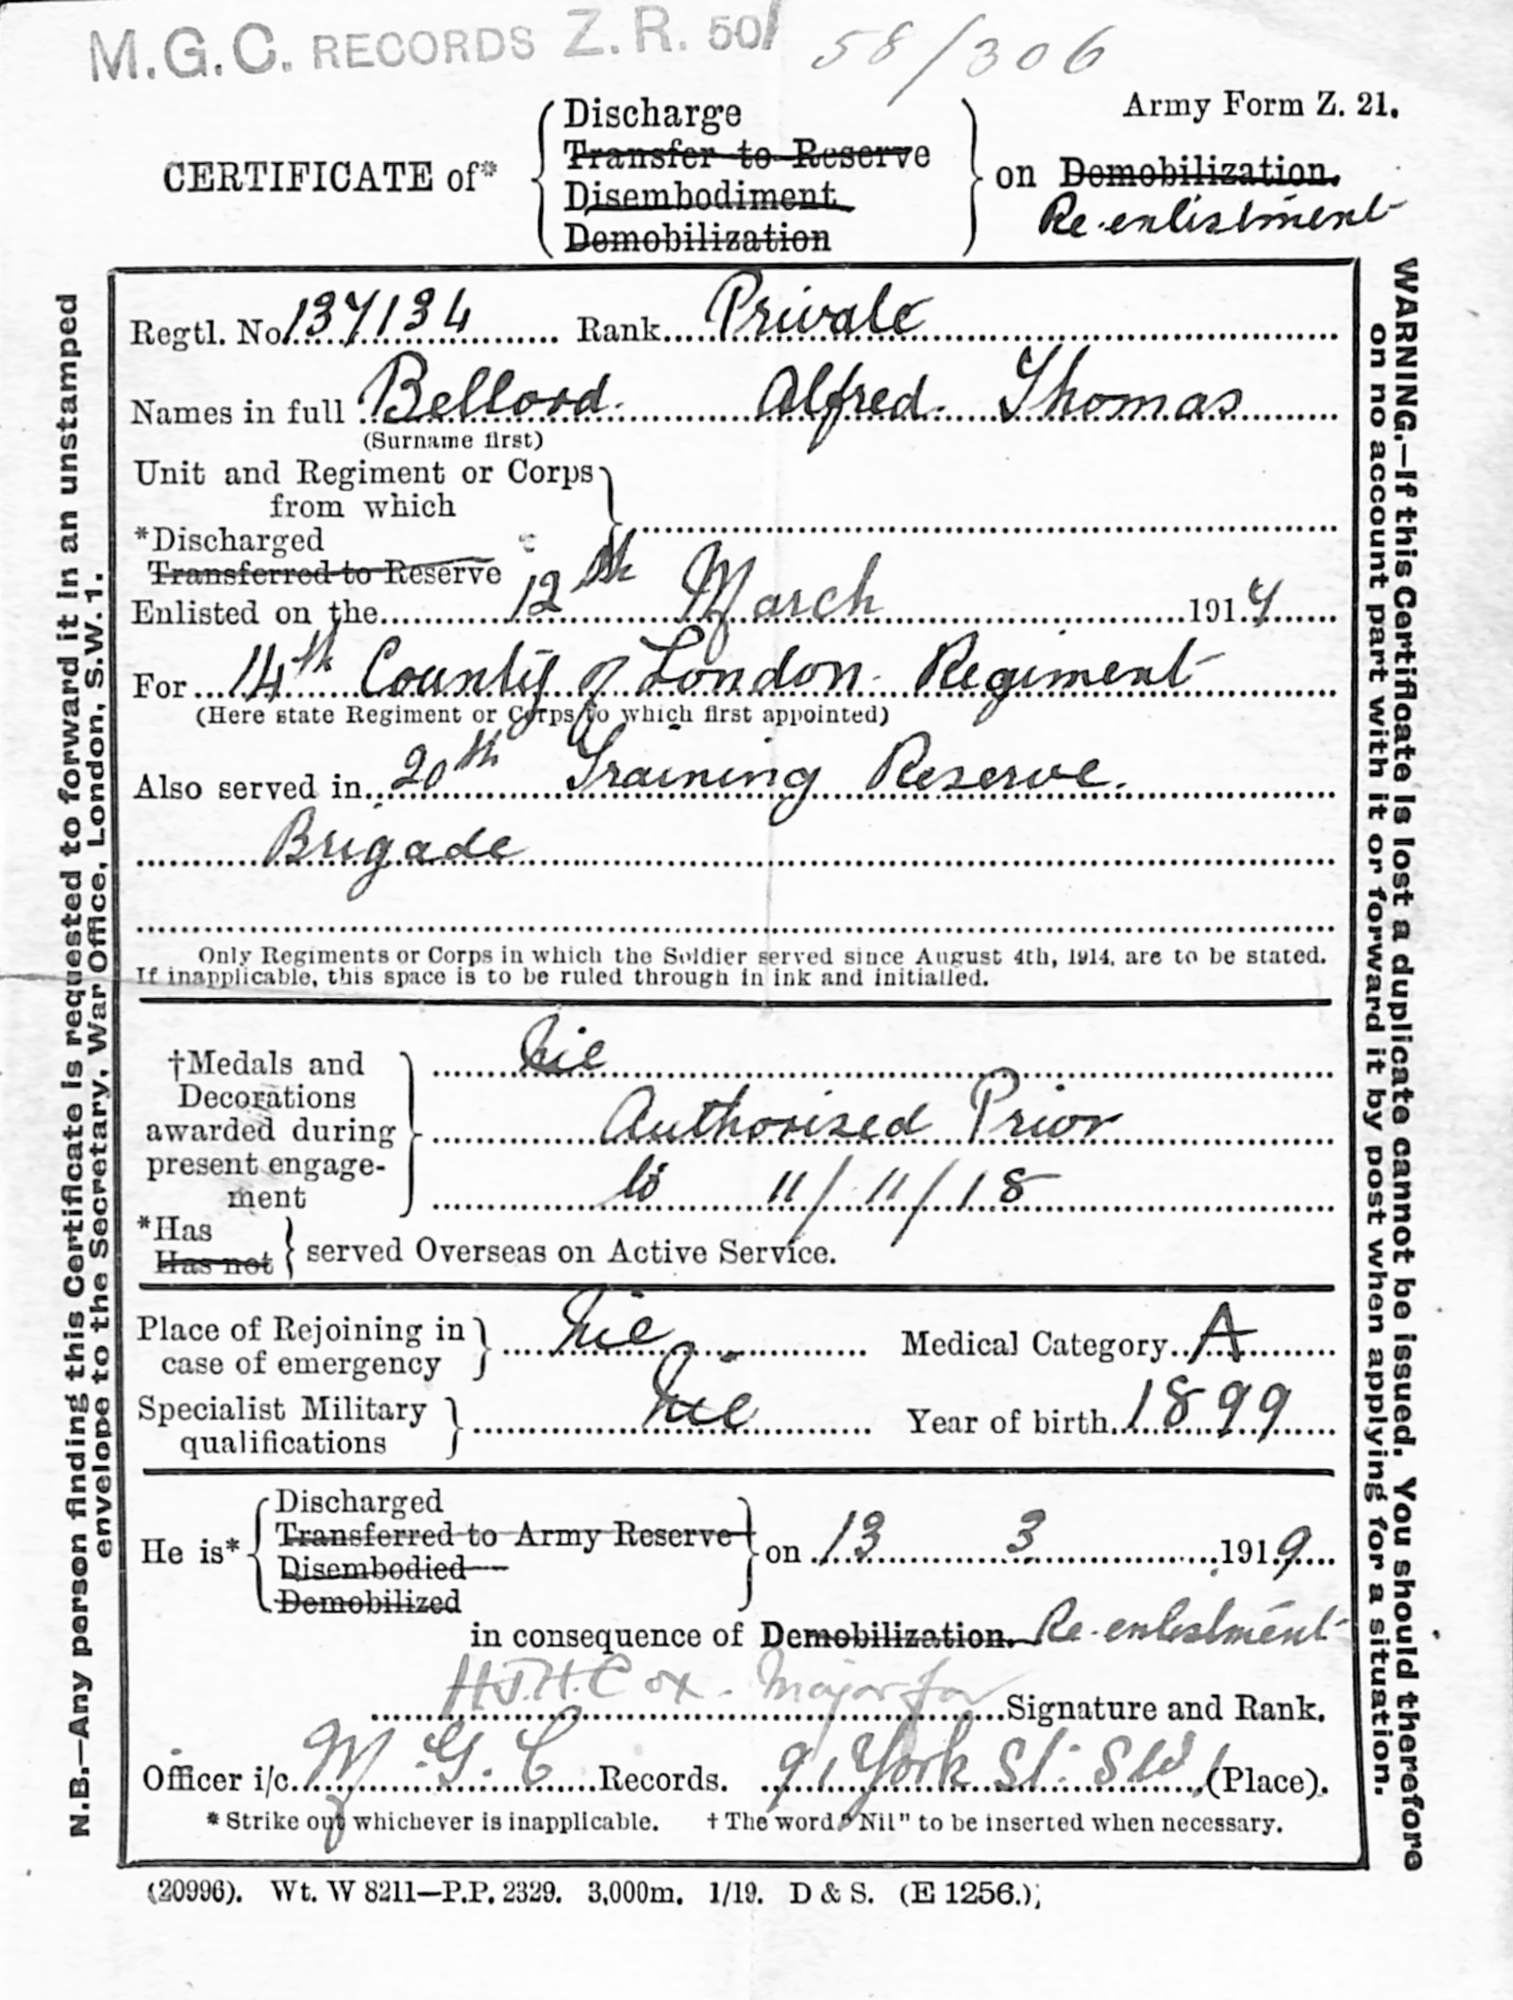 M.G.C. RECORDS Z.R. 50/ 58/306
Army Form Z. 21.
CERTIFICATE of* { Discharge
Transfer to Reserve
Disembodiment
Demobilization } on Demobilization.
Re-enlistment
Regtl. No. 137134 Rank Private
Names in full Bellord Alfred Thomas
(Surname first)
Unit and Regiment or Corps
from which
*Discharged
Transferred to Reserve
Enlisted on the 12th March 1917
For 14th County of London Regiment
(Here state Regiment or Corps to which first appointed)
Also served in 20th Training Reserve
Brigade
Only Regiments or Corps in which the Soldier served since August 4th, 1914, are to be stated.
If inapplicable, this space is to be ruled through in ink and initialled.
†Medals and
Decorations
awarded during
present engage-
ment
Nil
Authorised Prior
to 11/11/18
*Has
Has not } served Overseas on Active Service.
Place of Rejoining in
case of emergency } Nil Medical Category A
Specialist Military
qualifications } Nil Year of birth 1899
He is* { Discharged
Transferred to Army Reserve
Disembodied
Demobilized } on 13 3 1919
in consequence of Demobilization. Re-enlistment
H.J.H. Cox - Major for Signature and Rank.
Officer i/c M.G.C Records. 91 York St. SW1 (Place).
* Strike out whichever is inapplicable. † The word "Nil" to be inserted when necessary.
(20996). Wt. W 8211—P.P. 2329. 3,000m. 1/19. D & S. (E 1256.)
N.B.—Any person finding this Certificate is requested to forward it in an unstamped
envelope to the Secretary, War Office, London, S.W. 1.
WARNING.—If this Certificate is lost a duplicate cannot be issued. You should therefore
on no account part with it or forward it by post when applying for a situation.